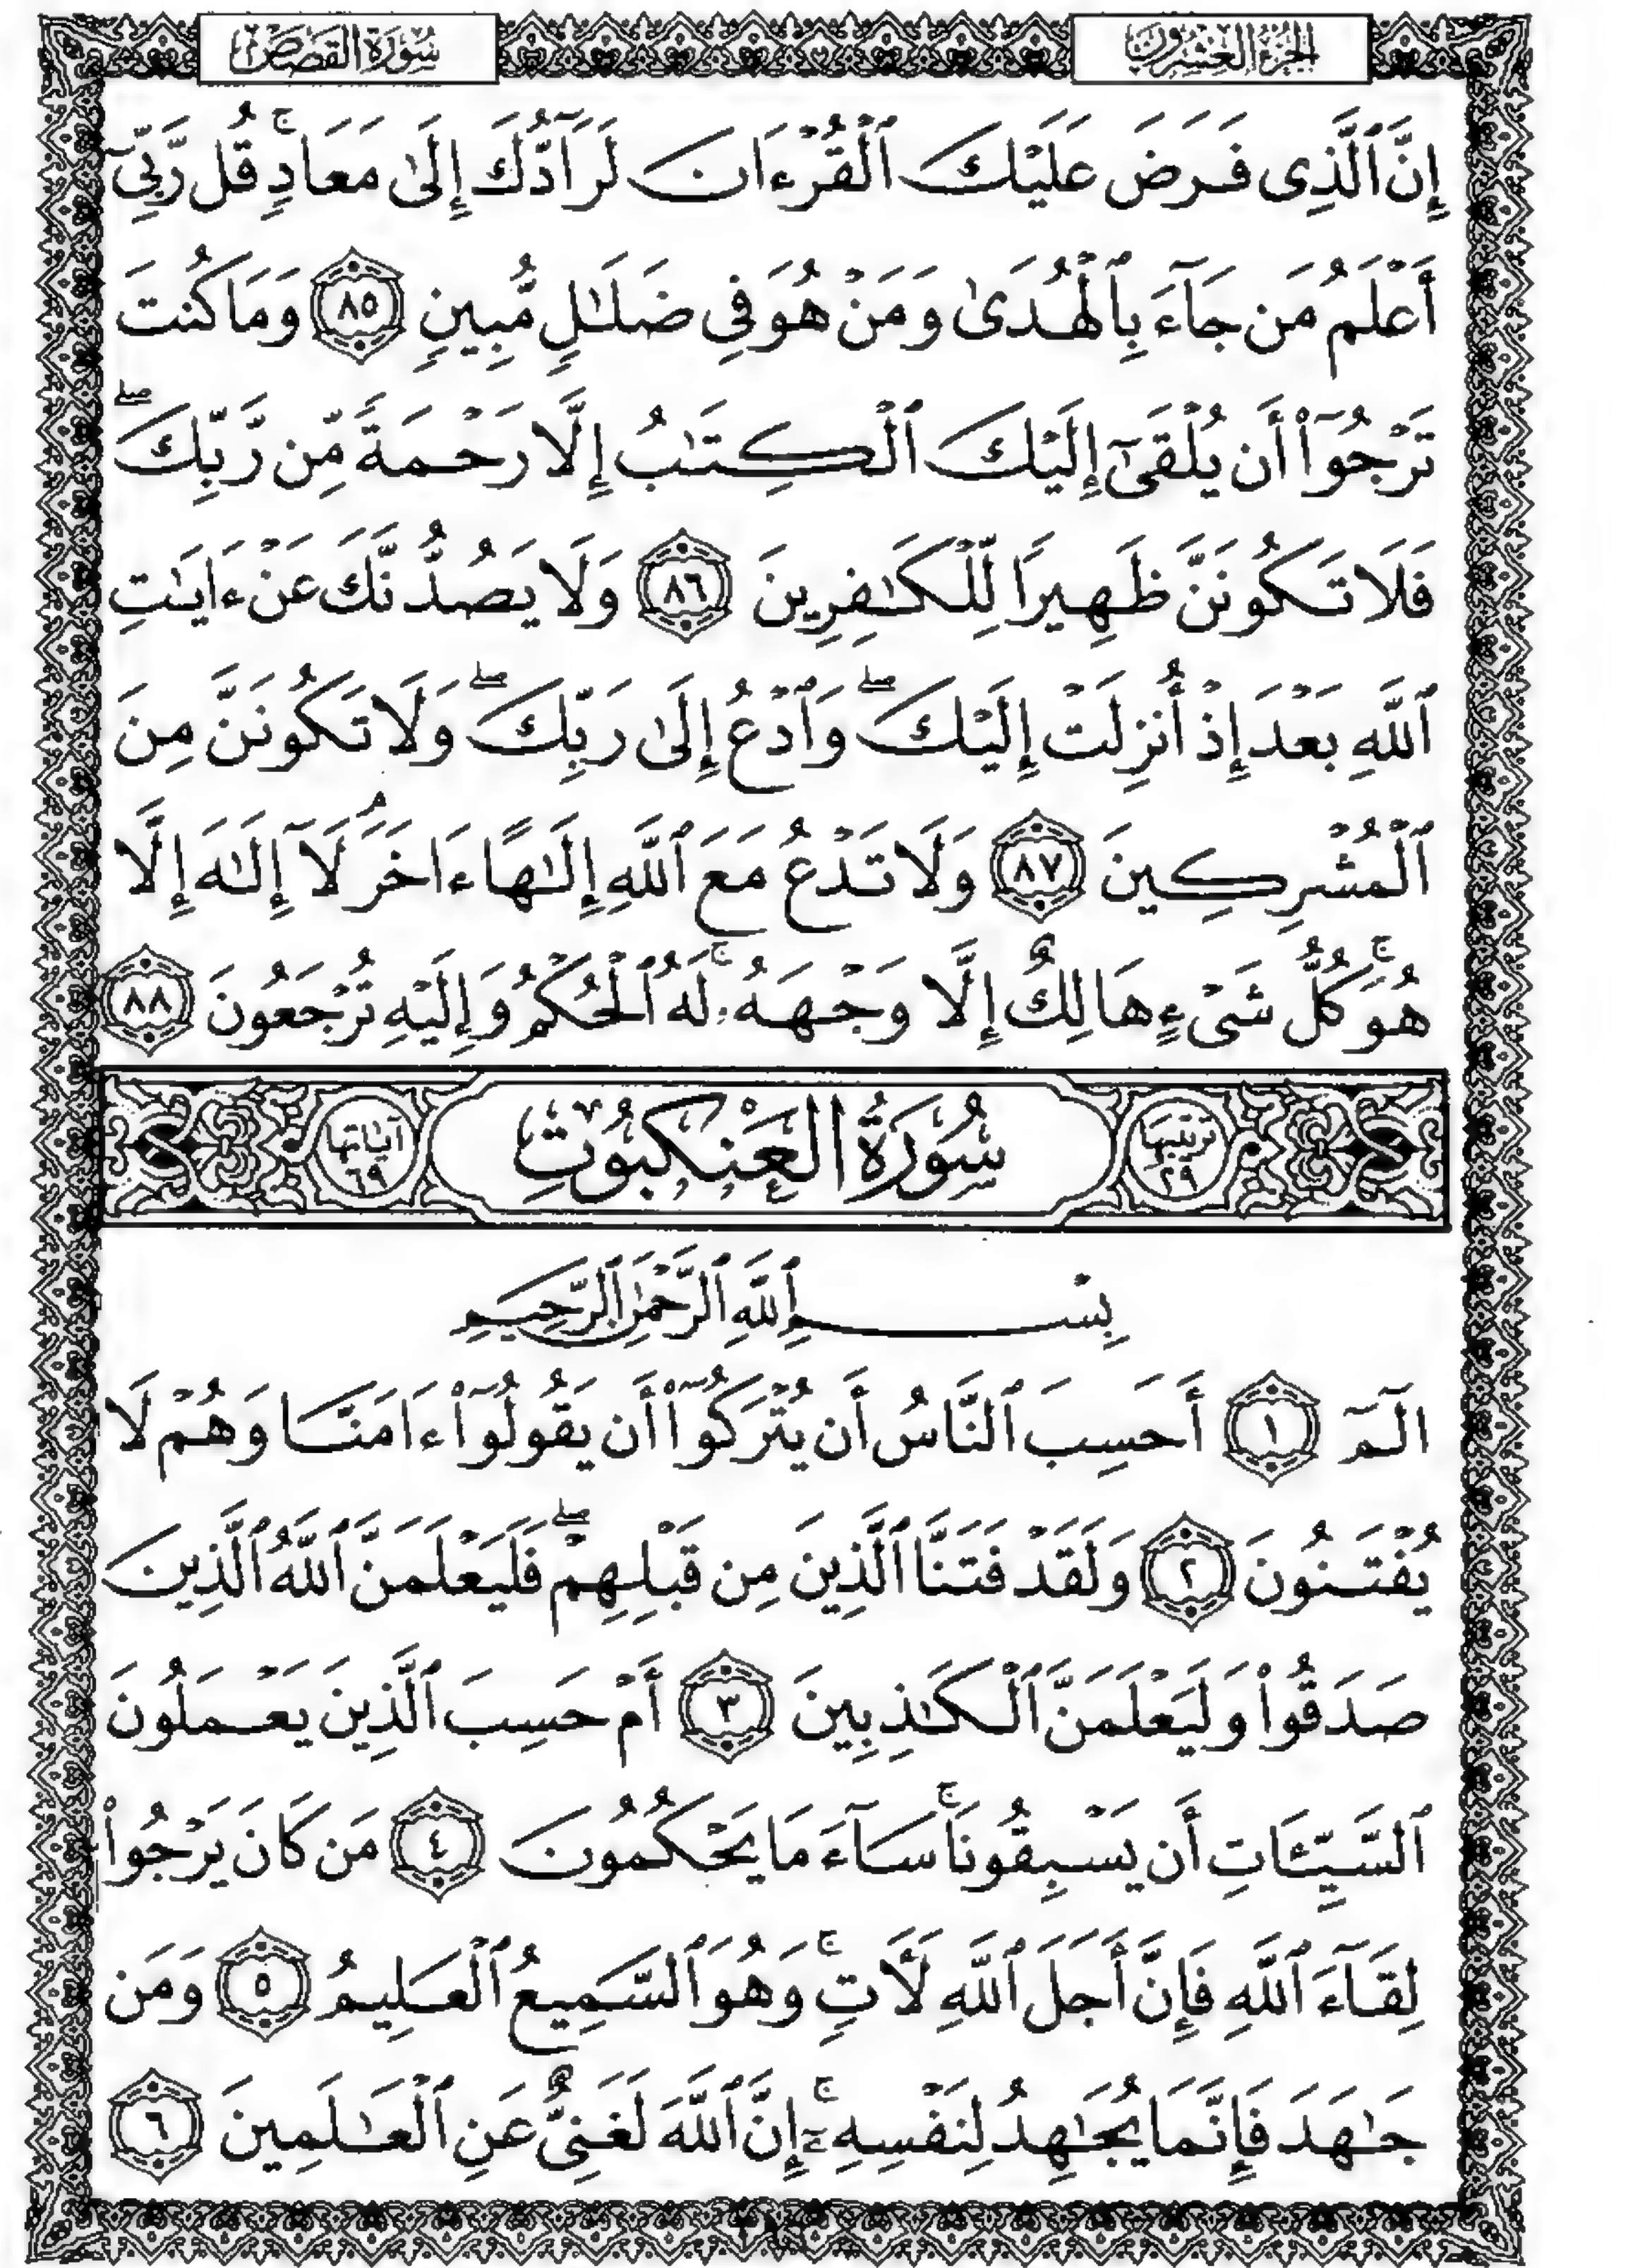 الجزء العشرون
سورة القصص
إِنَّ ٱلَّذِى فَرَضَ عَلَيْكَ ٱلْقُرْءَانَ لَرَآدُّكَ إِلَىٰ مَعَادٍۚ قُل رَّبِّىٓ
أَعْلَمُ مَن جَآءَ بِٱلْهُدَىٰ وَمَنْ هُوَ فِى ضَلَـٰلٍ مُّبِينٍ ٨٥ وَمَا كُنتَ
تَرْجُوٓا۟ أَن يُلْقَىٰٓ إِلَيْكَ ٱلْكِتَـٰبُ إِلَّا رَحْمَةً مِّن رَّبِّكَۖ
فَلَا تَكُونَنَّ ظَهِيرًا لِّلْكَـٰفِرِينَ ٨٦ وَلَا يَصُدُّنَّكَ عَنْ ءَايَـٰتِ
ٱللَّهِ بَعْدَ إِذْ أُنزِلَتْ إِلَيْكَۖ وَٱدْعُ إِلَىٰ رَبِّكَۖ وَلَا تَكُونَنَّ مِنَ
ٱلْمُشْرِكِينَ ٨٧ وَلَا تَدْعُ مَعَ ٱللَّهِ إِلَـٰهًا ءَاخَرَۘ لَآ إِلَـٰهَ إِلَّا
هُوَۚ كُلُّ شَىْءٍ هَالِكٌ إِلَّا وَجْهَهُۥۚ لَهُ ٱلْحُكْمُ وَإِلَيْهِ تُرْجَعُونَ ٨٨
ترتيبها ٢٩ سُورَةُ العَنكَبُوتِ آياتها ٦٩
بِسْمِ ٱللَّهِ ٱلرَّحْمَـٰنِ ٱلرَّحِيمِ
الٓمٓ ١ أَحَسِبَ ٱلنَّاسُ أَن يُتْرَكُوٓا۟ أَن يَقُولُوٓا۟ ءَامَنَّا وَهُمْ لَا
يُفْتَنُونَ ٢ وَلَقَدْ فَتَنَّا ٱلَّذِينَ مِن قَبْلِهِمْۖ فَلَيَعْلَمَنَّ ٱللَّهُ ٱلَّذِينَ
صَدَقُوا۟ وَلَيَعْلَمَنَّ ٱلْكَـٰذِبِينَ ٣ أَمْ حَسِبَ ٱلَّذِينَ يَعْمَلُونَ
ٱلسَّيِّـَٔاتِ أَن يَسْبِقُونَاۚ سَآءَ مَا يَحْكُمُونَ ٤ مَن كَانَ يَرْجُوا۟
لِقَآءَ ٱللَّهِ فَإِنَّ أَجَلَ ٱللَّهِ لَـَٔاتٍۚ وَهُوَ ٱلسَّمِيعُ ٱلْعَلِيمُ ٥ وَمَن
جَـٰهَدَ فَإِنَّمَا يُجَـٰهِدُ لِنَفْسِهِۦٓۚ إِنَّ ٱللَّهَ لَغَنِىٌّ عَنِ ٱلْعَـٰلَمِينَ ٦